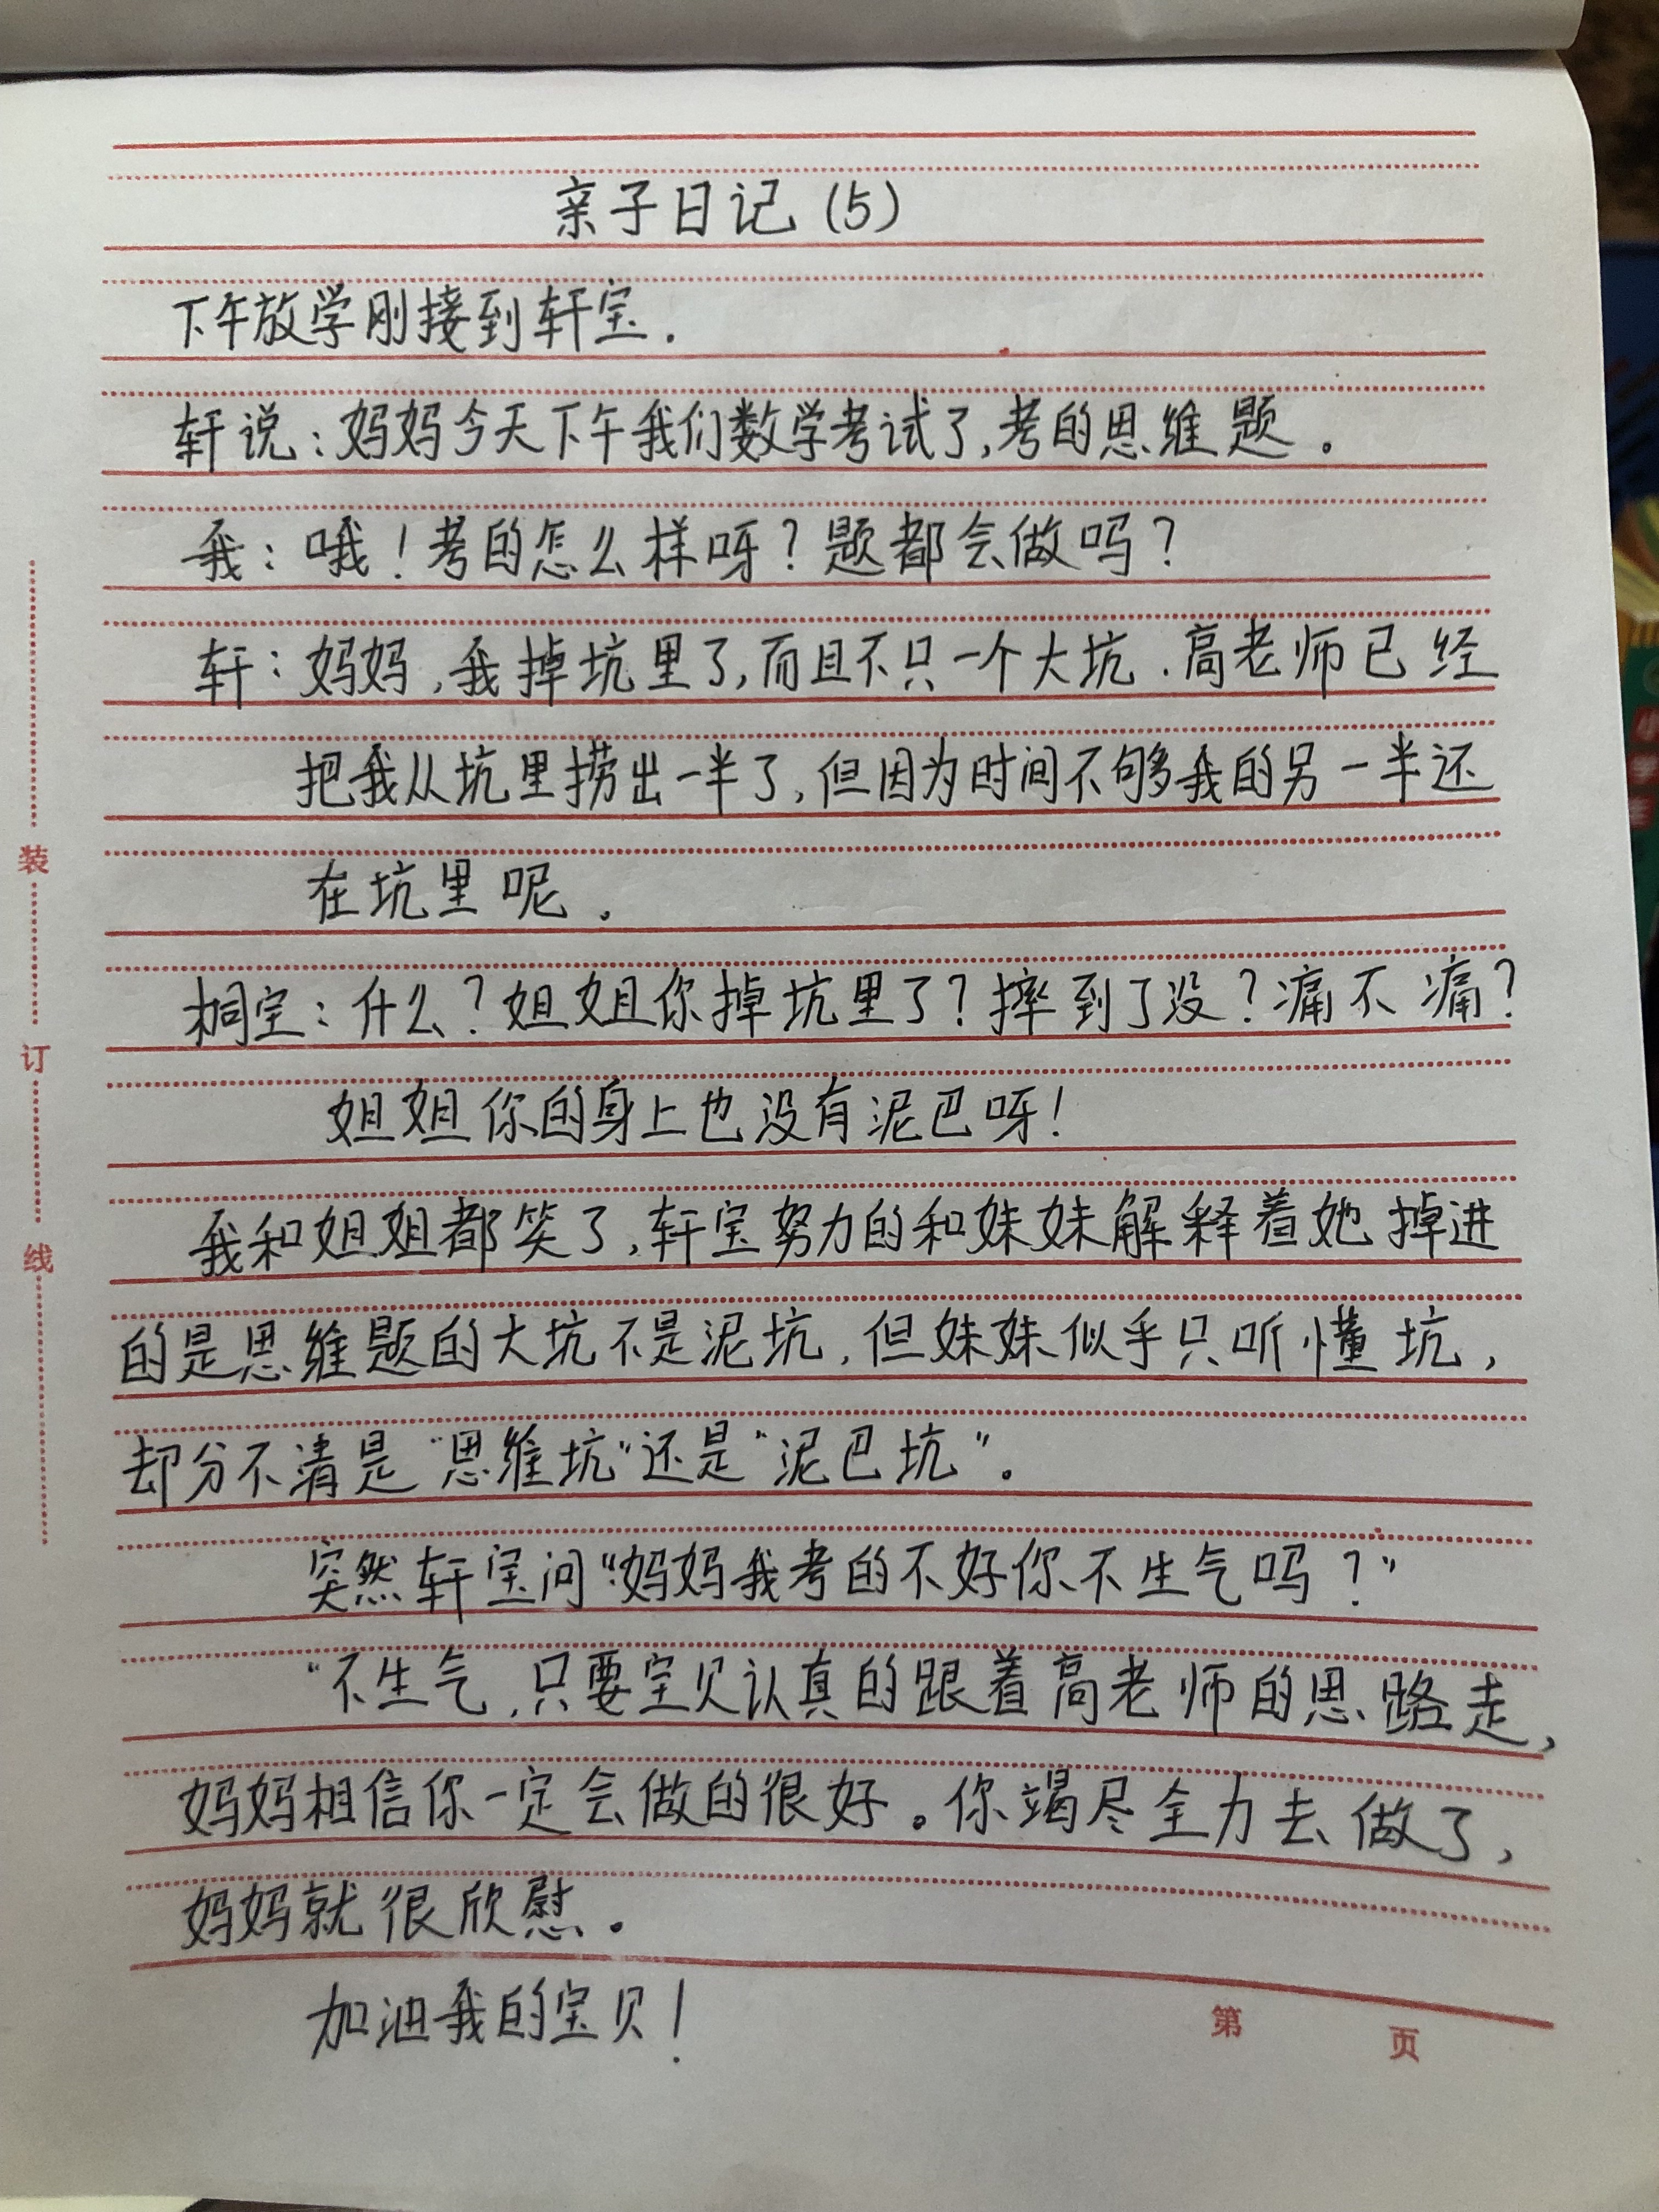 亲子日记(5)
下午放学刚接到轩宝.
轩说:妈妈今天下午我们数学考试了,考的思维题。
我:哦!考的怎么样呀?题都会做吗?
轩:妈妈,我掉坑里了,而且不只一个大坑.高老师已经
把我从坑里捞出一半了,但因为时间不够我的另一半还
在坑里呢.
桐宝:什么?姐姐你掉坑里了?摔到了没?痛不痛?
姐姐你的身上也没有泥巴呀!
我和姐姐都笑了,轩宝努力的和妹妹解释着她掉进
的是思维题的大坑不是泥坑,但妹妹似乎只听懂坑,
却分不清是"思维坑"还是"泥巴坑"。
突然轩宝问"妈妈我考的不好你不生气吗?"
"不生气,只要宝贝认真的跟着高老师的思路走,
妈妈相信你一定会做的很好。你竭尽全力去做了,
妈妈就很欣慰。
加油我的宝贝!
第 页
装
订
线
小
学